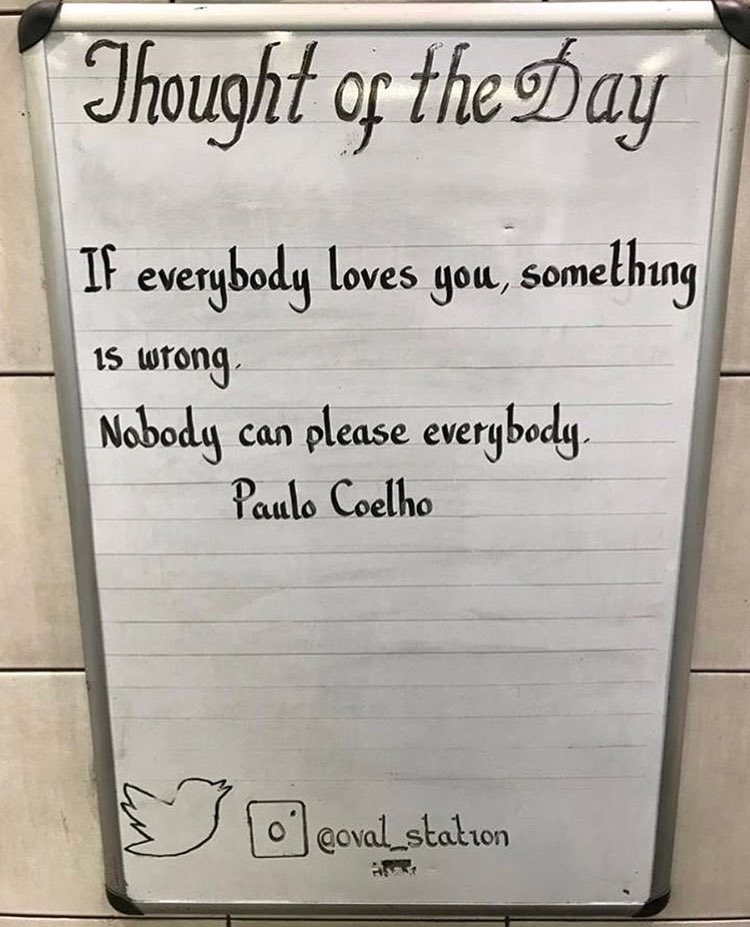 Thought of the Day
If everybody loves you, something
is wrong.
Nobody can please everybody.
Paulo Coelho
@oval_station